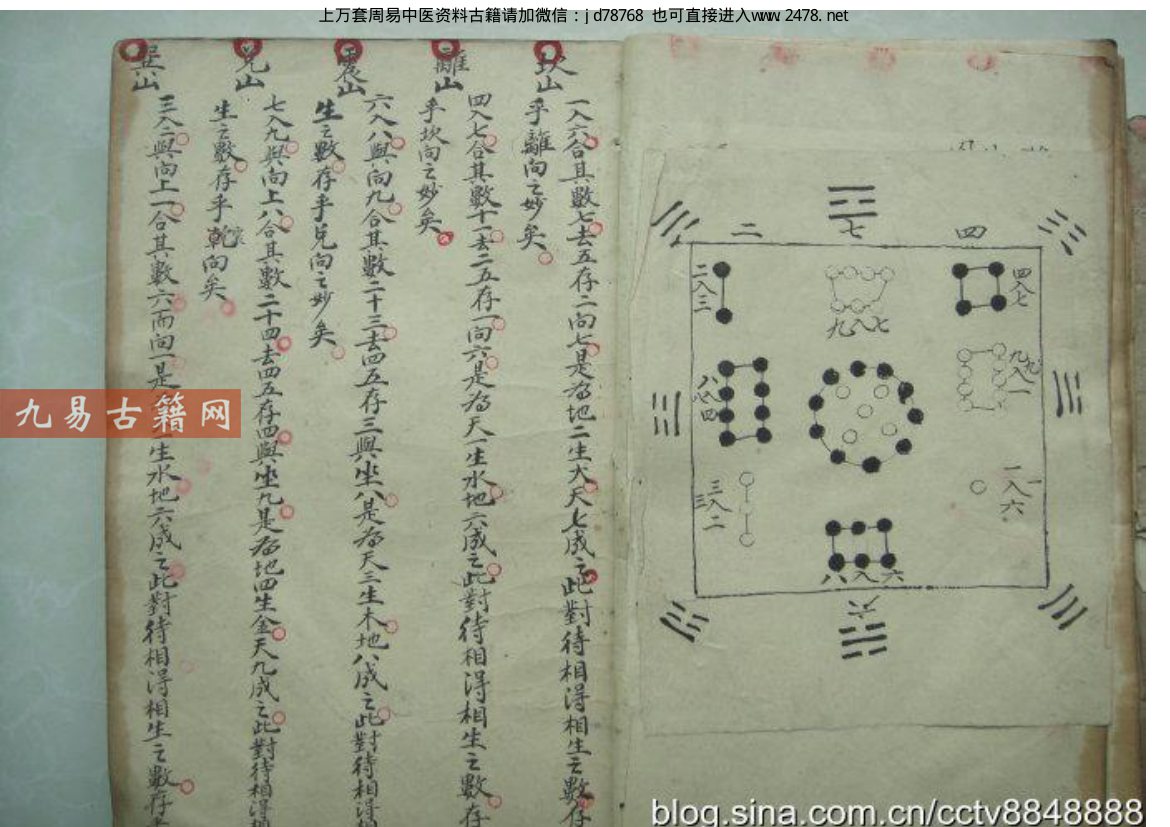 上万套周易中医资料古籍请加微信：jd78768 也可直接进入www.2478.net
坎山
一入六合其數七去五存二向七是為地二生火天七成之此對待相淂相生之數存
乎離向之妙矣
離山
四入七合其數十一去二五存一向六是為天一生水地六成之此對待相淂相生之數存
乎坎向之妙矣
震山
六入八與向九合其數二十三去四五存三與坐八是為天三生木地八成之此對待相淂相
生之數存乎兌向之妙矣
兌山
七入九與向上八合其數二十四去四五存四與坐九是為地四生金天九成之此對待相淂相
生之數存乎震向矣
巽山
三入二與向上一合其數六而向一是 生水地六成之此對待相淂相生之數存
二 七 四
二入三
九入七
四入七
八入四
九入一
三入二
一入六
八入六
六
九易古籍网
blog.sina.com.cn/cctv8848888